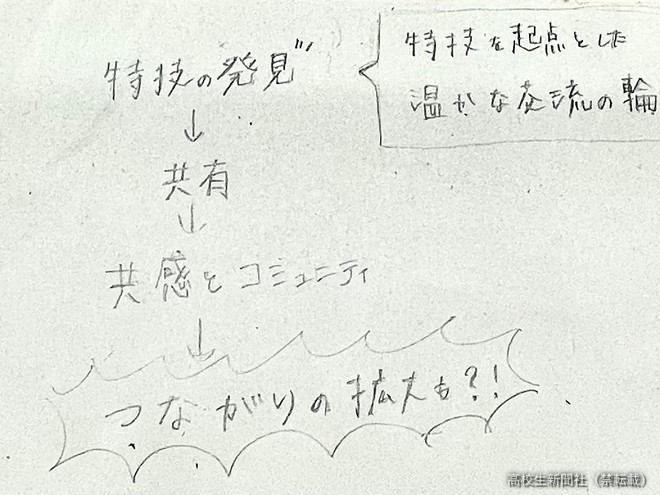 特技の発見
↓
共有
↓
共感とコミュニティ
↓
つながりの拡大も?!
特技を起点とした
温かな交流の輪
高校生新聞社(禁転載)